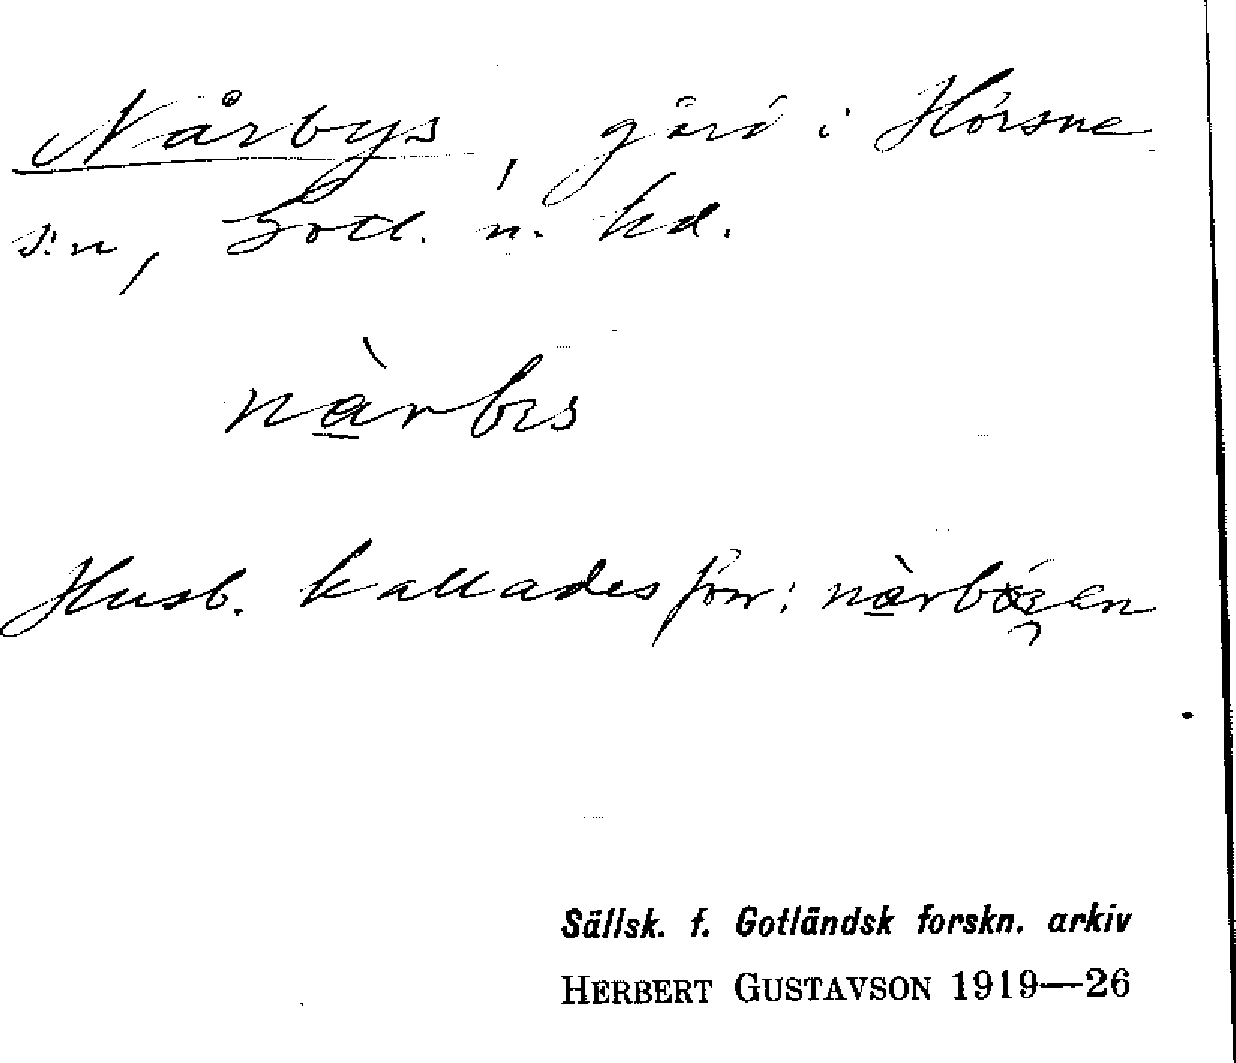 Nårbys, gård i Hörsne
s:n, Gotl. n. hd.
nàrbıs
Husb. kallades förr:
Sällsk. f. Gotländsk forskn. arkiv
HERBERT GUSTAVSON 1919—26